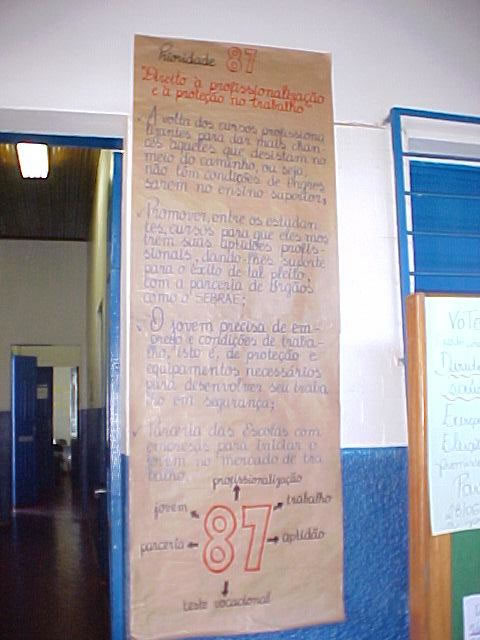 Prioridade 87
"Direito à profissionalização
e à proteção no trabalho"
A volta dos cursos profissiona
lizantes para dar mais chan-
ces àqueles que desistam no
meio do caminho, ou seja,
não têm condições de ingres
sarem no ensino superior;
Promover, entre os estudan
tes, cursos para que eles mos
trem suas aptidões profis-
sionais, dando-lhes suporte
para o êxito de tal pleito,
com a parceria de órgãos
como o SEBRAE;
O jovem precisa de em-
prego e condições de traba-
lho, isto é, de proteção e
equipamentos necessários
para desenvolver seu traba
lho em segurança;
Parceria das Escolas com
empresas para iniciar o
jovem no mercado de tra
balho.
profissionalização
jovem
trabalho
87
parceria
aptidão
teste vocacional
Vote